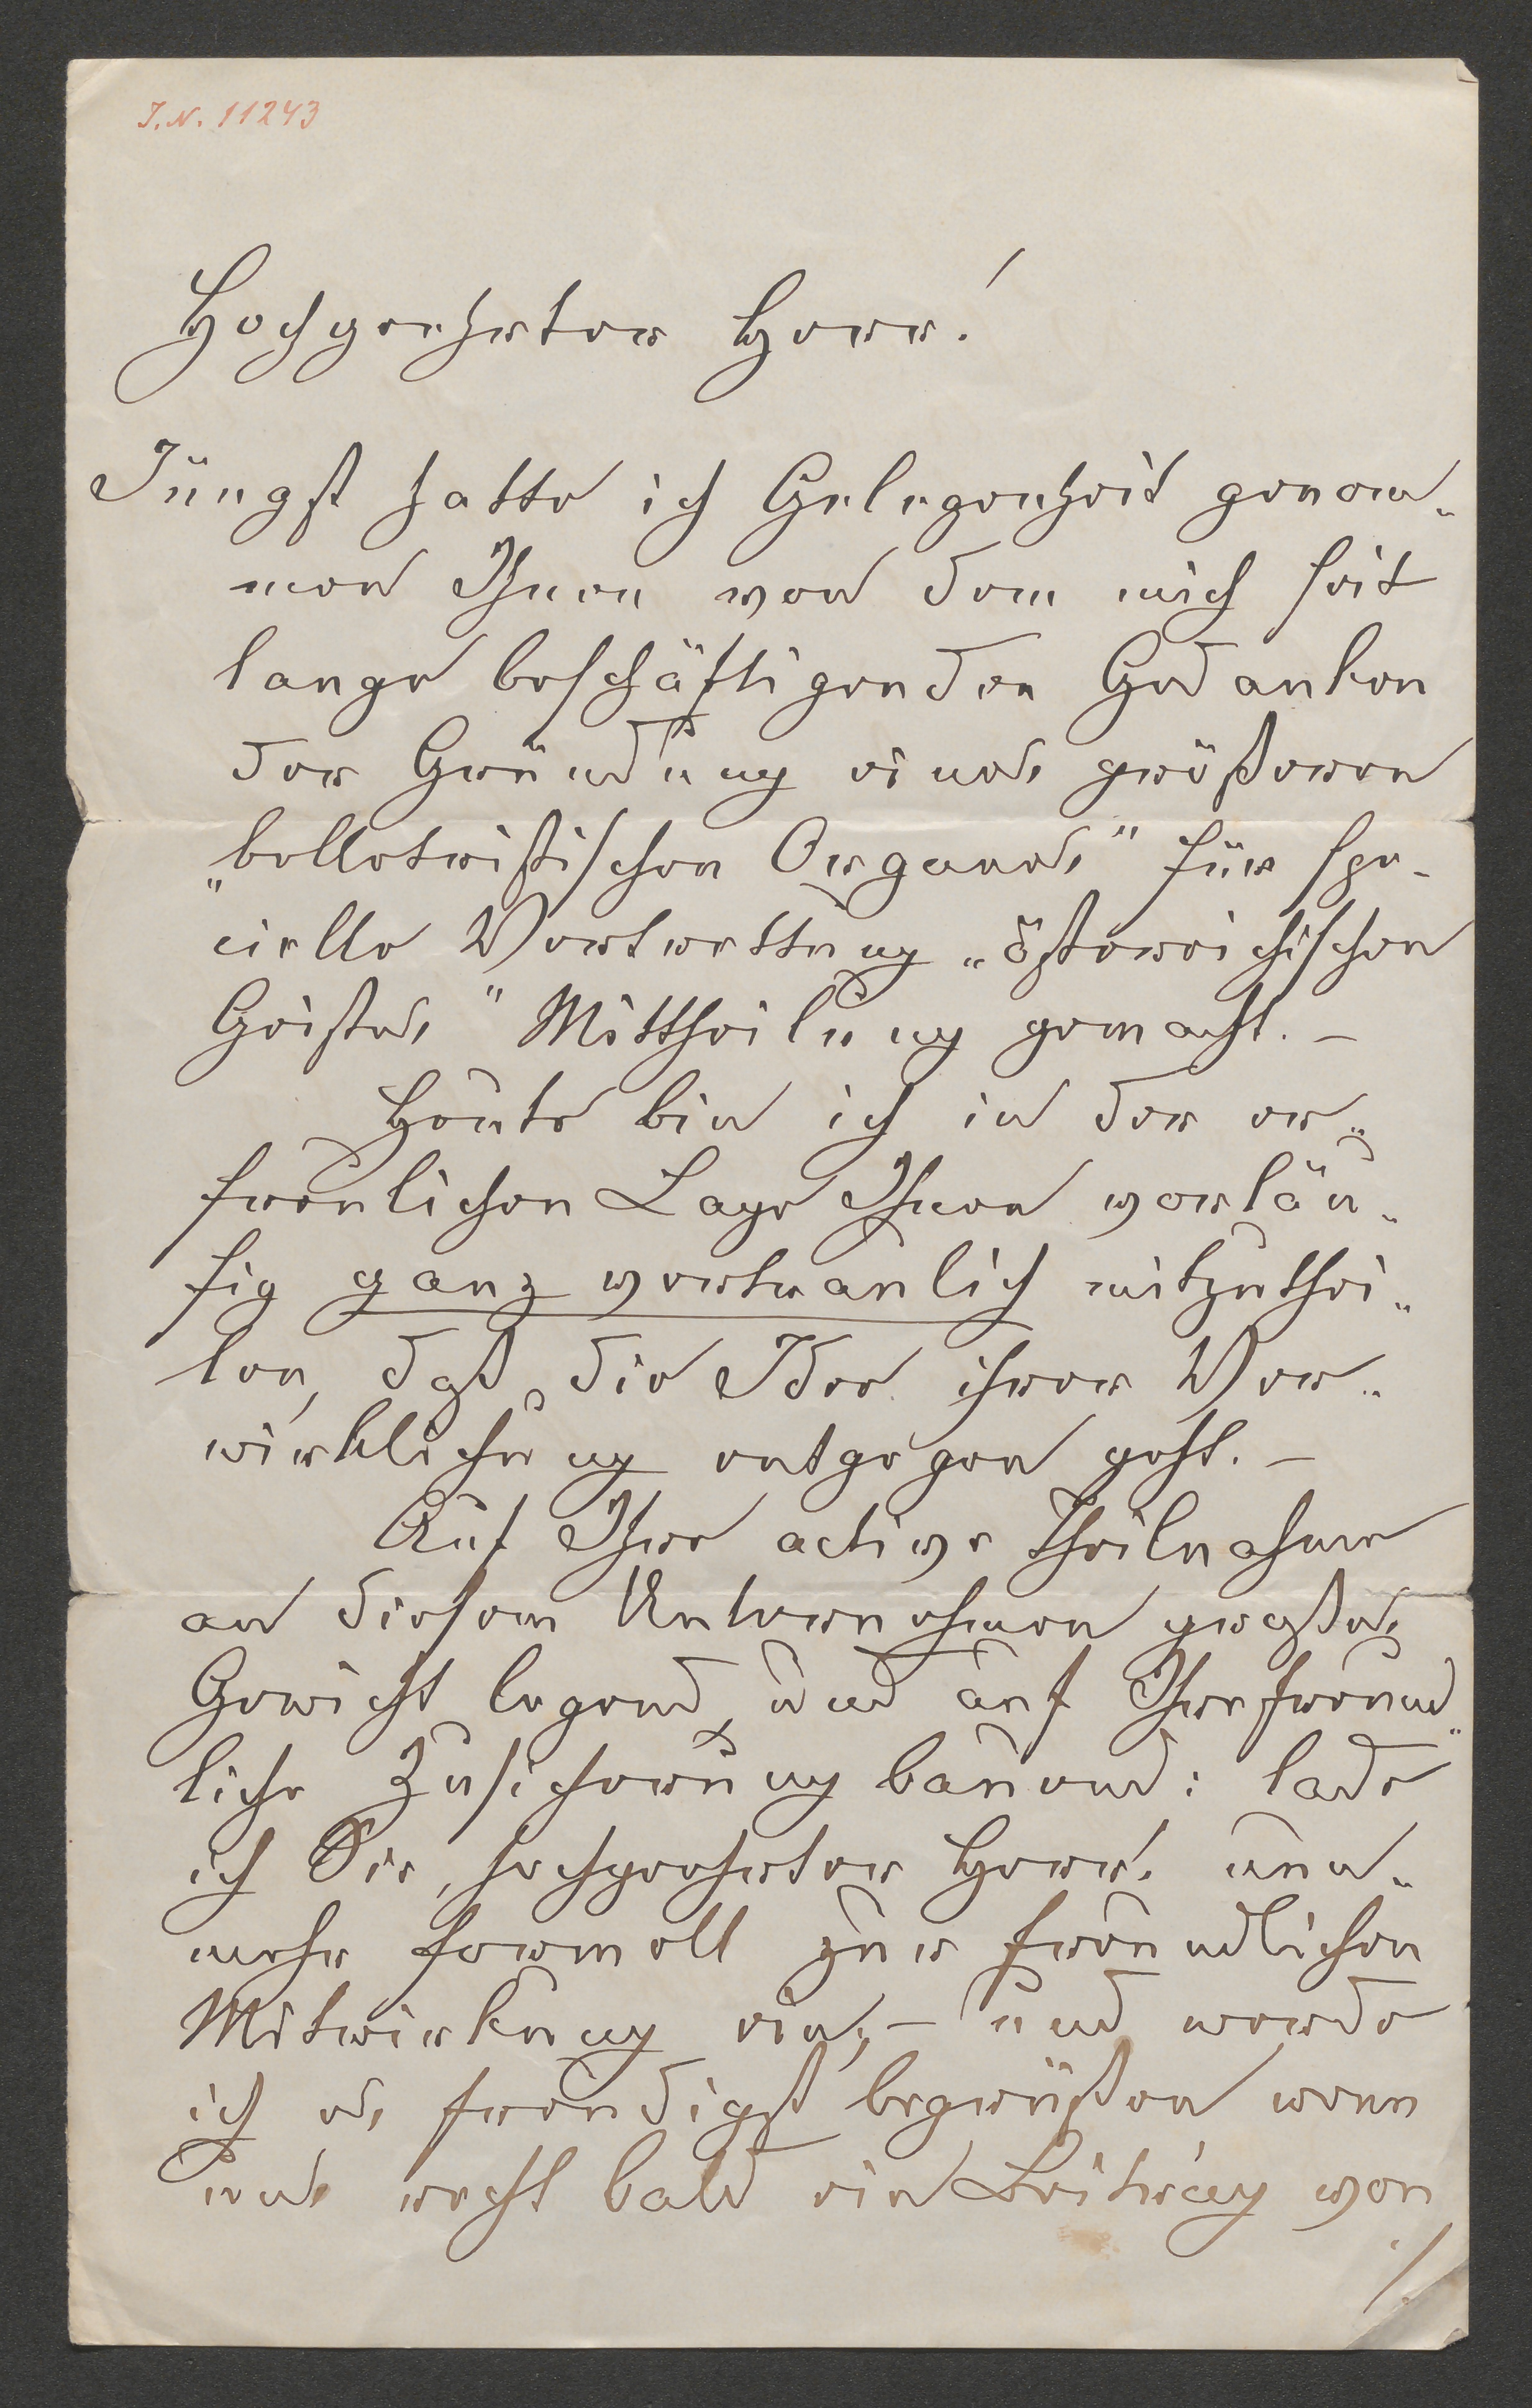 J.N. 11243
Hochgeehrter Herr!
Jüngst hatte ich Gelegenheit genom„
men Ihnen von dem mich seit
lange beschäftigenden Gedanken
der Gründung eines größeren
„belletristischen Organes" für spe-
cielle Vertrettung „östereichischen
Geistes" Mittheilung gemacht. –
Heute bin ich in der er„
freulichen Lage Ihnen vorläu„
fig ganz vertraulich mitzuthei„
len, daß die Idee ihrer Ver„
wirklichung entgegen geht. –
Auf Ihre active Theilnahme
an diesem Unternehmen großes
Gewicht legend, und auf Ihre freund„
liche Zusicherung bauend: lade
ich Sie, hochgeehrter Herr! nun„
mehr formell zur freundlichen
Mitwirkung ein; – und werde
ich es freudigst begrüßen wenn
uns recht bald ein Beitrag von
./.